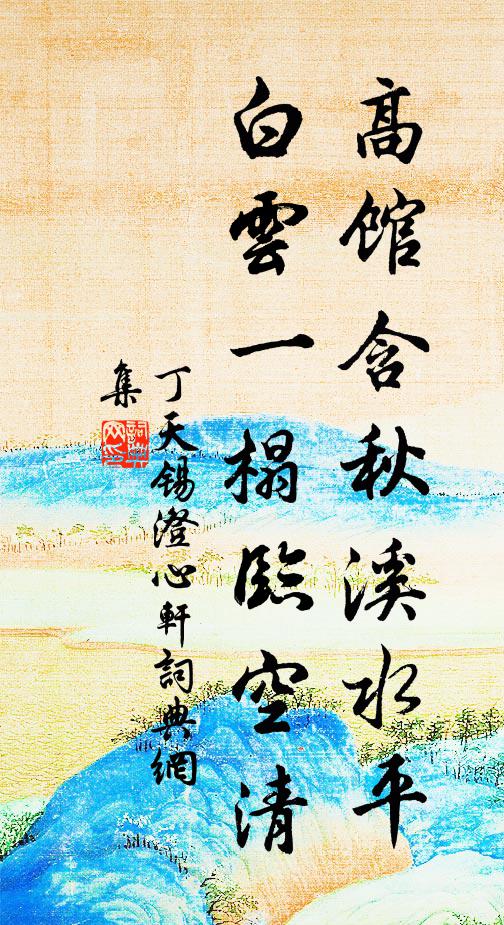 高館含秋溪水平
白雲一榻臨空清
丁天錫澄心軒詞典網
集